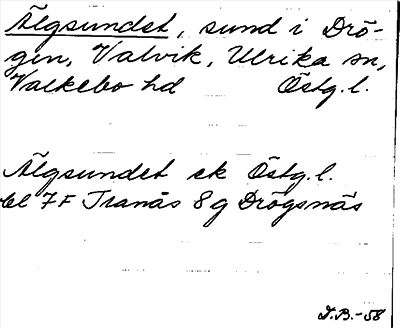 Älgsundet, sund i Drö-
gen, Valvik, Ulrika sn,
Valkebo hd Östg. l.
Älgsundet ek Östg. l.
bl 7F Tranås 8g Drögsnäs
D.B.-58